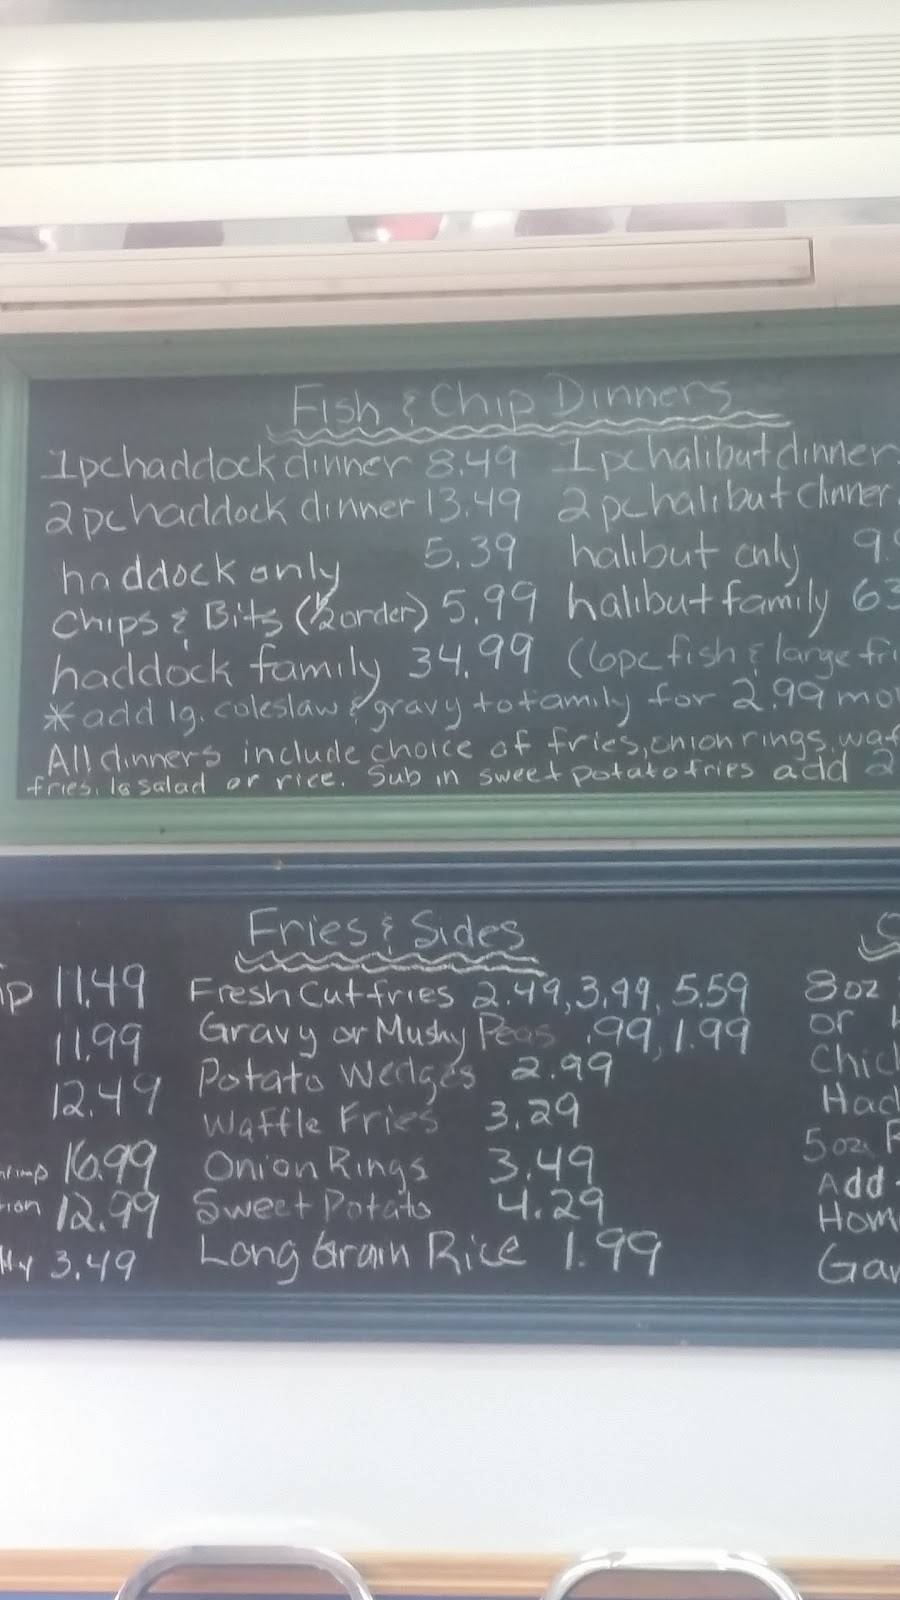 Fish & Chip Dinners
1pc haddock dinner 8.49 1pc halibut dinner
2pc haddock dinner 13.49 2pc halibut dinner
haddock only 5.39 halibut only 9.9
Chips & Bits (1/2 order) 5.99 halibut family 63
haddock family 34.99 (6pc fish & large fri
*add lg. coleslaw & gravy to family for 2.99 mo
All dinners include choice of fries, onion rings, waf
fries, lg salad or rice. Sub in sweet potato fries add 2
Fries & Sides
11.49 Fresh Cut fries 2.49, 3.99, 5.59 8oz
11.99 Gravy or Mushy Peas .99, 1.99 or
12.49 Potato Wedges 2.99 Chic
Waffle Fries 3.29 Had
16.99 Onion Rings 3.49 5oz
12.99 Sweet Potato 4.29 Add
3.49 Long Grain Rice 1.99 Hom
Gar